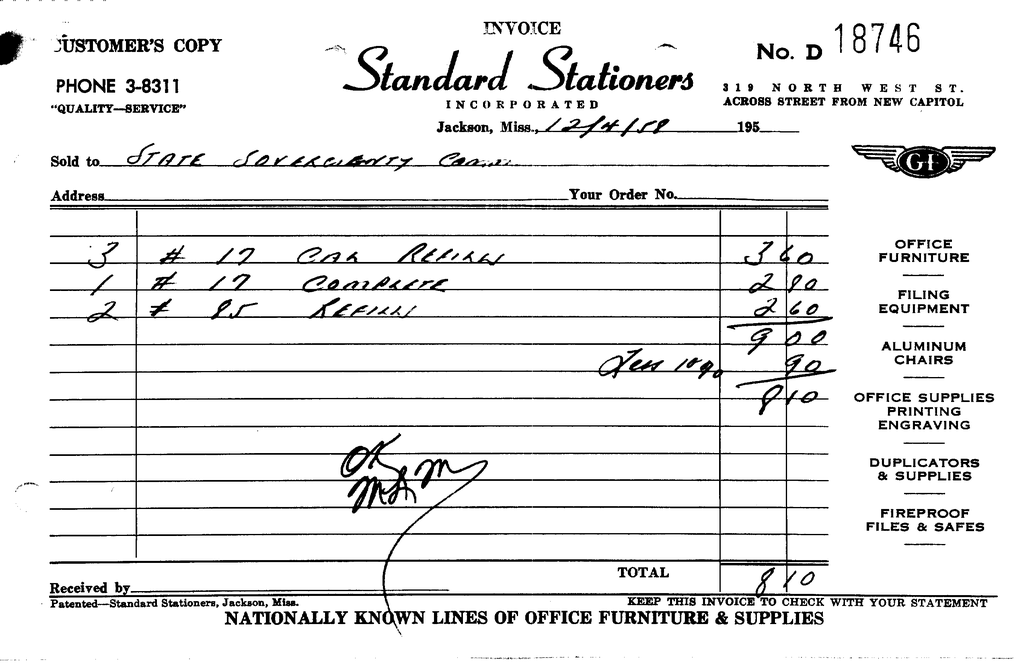 INVOICE
CUSTOMER'S COPY
No. D 18746
Standard Stationers
INCORPORATED
PHONE 3-8311
"QUALITY—SERVICE"
319 NORTH WEST ST.
ACROSS STREET FROM NEW CAPITOL
Jackson, Miss., 12/4/59 195
Sold to STATE SOVERCIENTY Comm.
GF
Address Your Order No.
3 # 17 CAL REFILLS 3 60
1 # 17 COMPLETE 2 80
2 # 85 REFILLS 2 60
9 00
Less 10% 90
8 10
OK
OFFICE
FURNITURE
FILING
EQUIPMENT
ALUMINUM
CHAIRS
OFFICE SUPPLIES
PRINTING
ENGRAVING
DUPLICATORS
& SUPPLIES
FIREPROOF
FILES & SAFES
TOTAL 8 10
Received by
Patented—Standard Stationers, Jackson, Miss.
KEEP THIS INVOICE TO CHECK WITH YOUR STATEMENT
NATIONALLY KNOWN LINES OF OFFICE FURNITURE & SUPPLIES